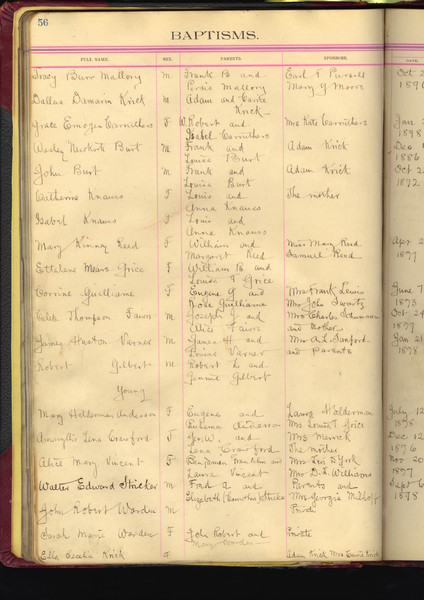 56
BAPTISMS.
FULL NAME. SEX. PARENTS. SPONSORS. DATE.
Tracy Burr Mallory M Frank B and Earl T Pursell Oct 2
Persis Mallory Mary G Moore 189
Dallas Damarin Krick M Adam and Carrie
Krick
Grace Emogen Carruthers F W. Robert and Mrs Kate Carruthers Jan 2
Isabel Carruthers 1898
Wesley Burt M Frank and Adam Krick Dec
Louisa Burt 1886
John Burt M Frank and Adam Krick Oct 2
Louisa Burt 1892
Catherine Knauss F Louis and The mother
Anna Knauss
Isabel Knauss F Louis and
Anna Knauss
Mary Kinney Reed F William and Miss Mary Reed Apr 2
Margaret Reed Samuel Reed 1897
Ettelene Mears Grice F William B and
Louise T Grice
Corrine Guilliame F Eugene G and Mrs Frank Lewis June 7
Rose Guilliame Mrs John Swartz 1893
Caleb Thompson Fawn M Joseph J and Mrs Charles Oct 24
Alice Fawn and Mother 1897
James Huston Varner M James H and Mrs A L Sanford Jan 21
Louise Varner and Parents 1898
Robert Gilbert M Robert L and
Jennie Gilbert
Young
Mary Holderman Anderson F Eugene and Laura Holderman July 12
Anderson Mrs Louise T Grice 1898
Lena Crawford F Geo W. and Mrs Merrick Dec 12
Lena Crawford The mother 1896
Alice Mary Vincent F Benjamin Franklin and Mrs Levi D York Nov 20
Laura Vincent Mrs D. S. Williams 1897
Walter Edward Stricker M Fred A and Parents and Sept 6
Elizabeth Stricker Mrs Georgia 1898
John Robert Warden M Private
Sarah Marie Warden F John Robert and Private
Mary Warden
Ella Cecelia Krick F Adam Krick Mrs Carrie Krick